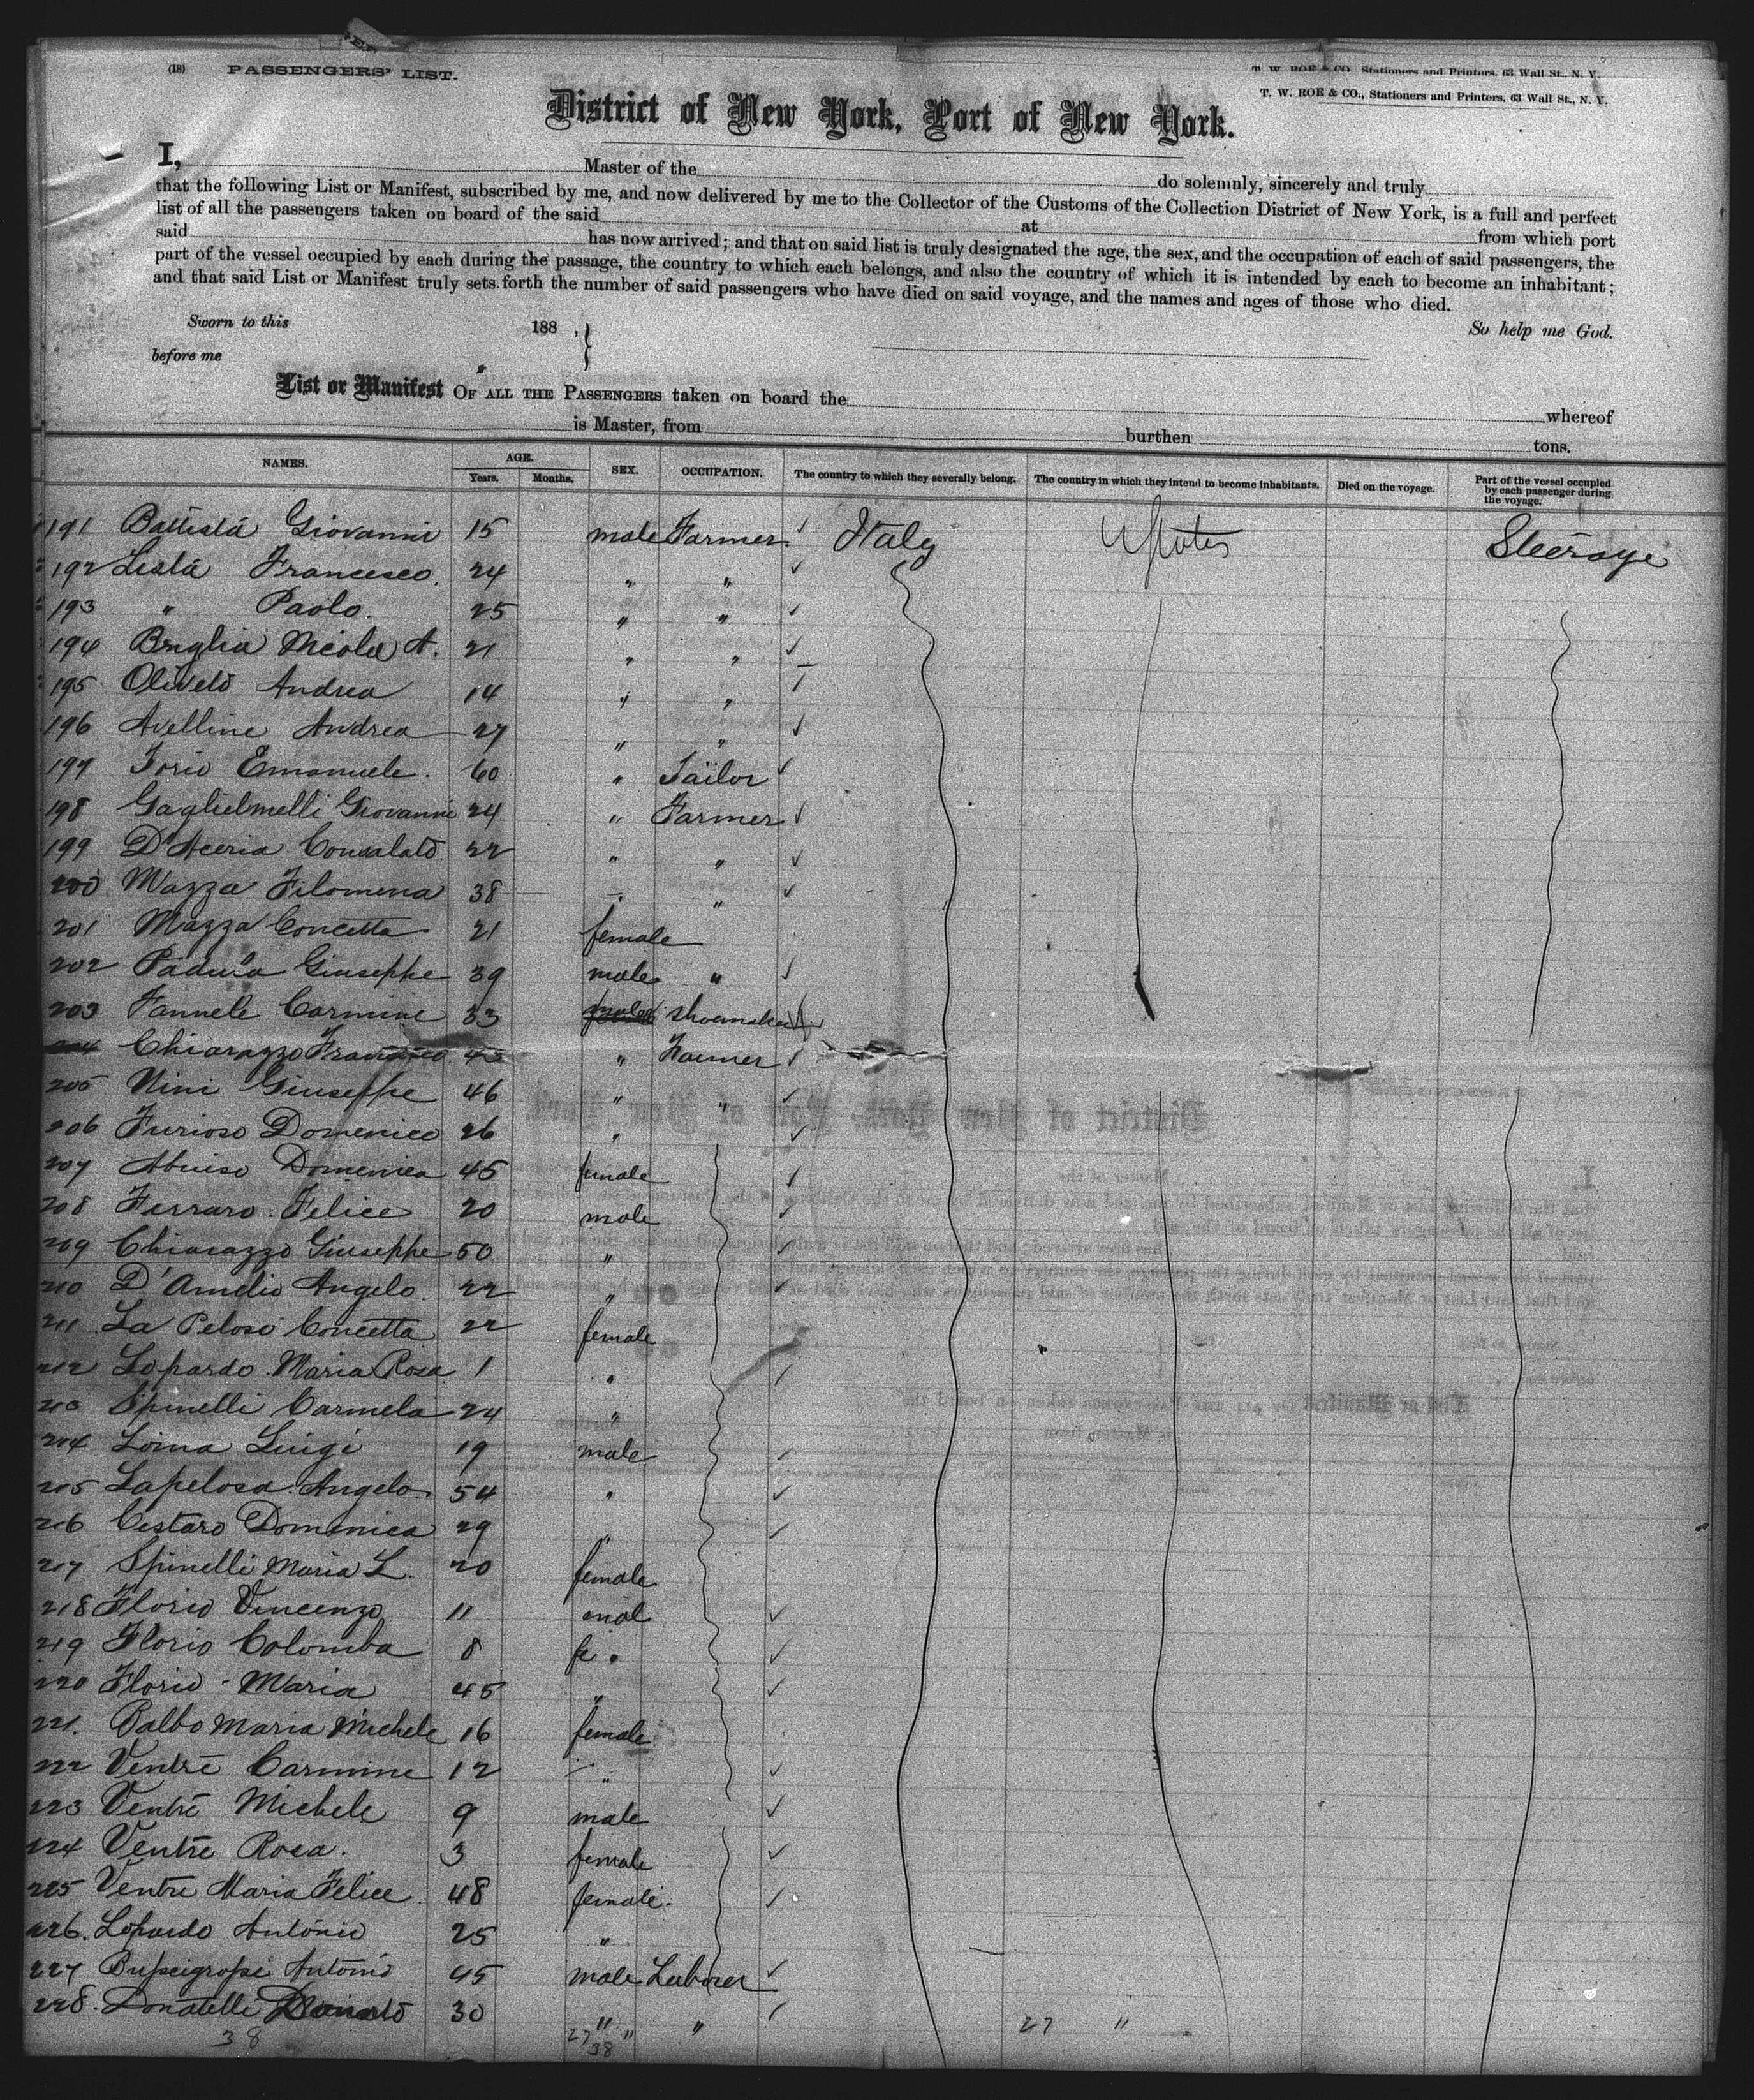 (18) PASSENGERS' LIST.
T. W. ROE & CO., Stationers and Printers, 63 Wall St., N. Y.
T. W. ROE & CO., Stationers and Printers, 63 Wall St., N. Y.
District of New York, Port of New York.
I, Master of the do solemnly, sincerely and truly
that the following List or Manifest, subscribed by me, and now delivered by me to the Collector of the Customs of the Collection District of New York, is a full and perfect
list of all the passengers taken on board of the said at from which port
said has now arrived; and that on said list is truly designated the age, the sex, and the occupation of each of said passengers, the
part of the vessel occupied by each during the passage, the country to which each belongs, and also the country of which it is intended by each to become an inhabitant;
and that said List or Manifest truly sets forth the number of said passengers who have died on said voyage, and the names and ages of those who died.
Sworn to this 188 , } So help me God.
before me
List or Manifest OF ALL THE PASSENGERS taken on board the whereof
is Master, from burthen tons.
NAMES. AGE. Years. Months. SEX. OCCUPATION. The country to which they severally belong. The country in which they intend to become inhabitants. Died on the voyage. Part of the vessel occupied by each passenger during the voyage.
191 Battista Giovanni 15 male Farmer Italy UStates Steerage
192 Lista Francesco. 24 " "
193 " Paolo. 25 " "
194 Briglia Nicola A. 21 " "
195 Oliveto Andrea 14 " "
196 Avelline Andrea 27 " "
197 Iorio Emanuele. 60 " Tailor
198 Gaglielmelli Giovanni 24 " Farmer
199 D'Aceria 22 " "
200 Mazza Filomena 38 "
201 Mazza Concetta 21 female
202 Padula Giuseppe 39 male "
203 Iannele Carmine 33 male shoemaker
204 Chiarazzo Francesco 43 " Farmer
205 Nini Giuseppe 46 " "
206 Furioso Domenico 26 "
207 Abuiso Domenica 45 female
208 Ferraro Felice 20 male
209 Chiarazzo Giuseppe 50 "
210 D'Amelio Angelo. 22 "
211 La Peloso Concetta 22 female
212 Lopardo Maria Rosa 1 "
213 Spinelli Carmela 24 "
214 Loina Luigi 19 male
215 Lapelosa Angelo. 54 "
216 Cestaro Domenica 29 "
217 Spinelli Maria L. 20 female
218 Florio Vincenzo 11 mal
219 Florio Colomba 8 fe "
220 Florio Maria 45 "
221. Balbo Maria Michele 16 female
222 Ventre Carmine 12 "
223 Ventre Michele 9 male
224 Ventre Rosa. 3 female
225 Ventre Maria Felice 48 female.
226. Lopardo Antonio 25 "
227 Antonio 45 male Laborer
228. Donatelli Donato 30 " "
38 27 " 38 27 "